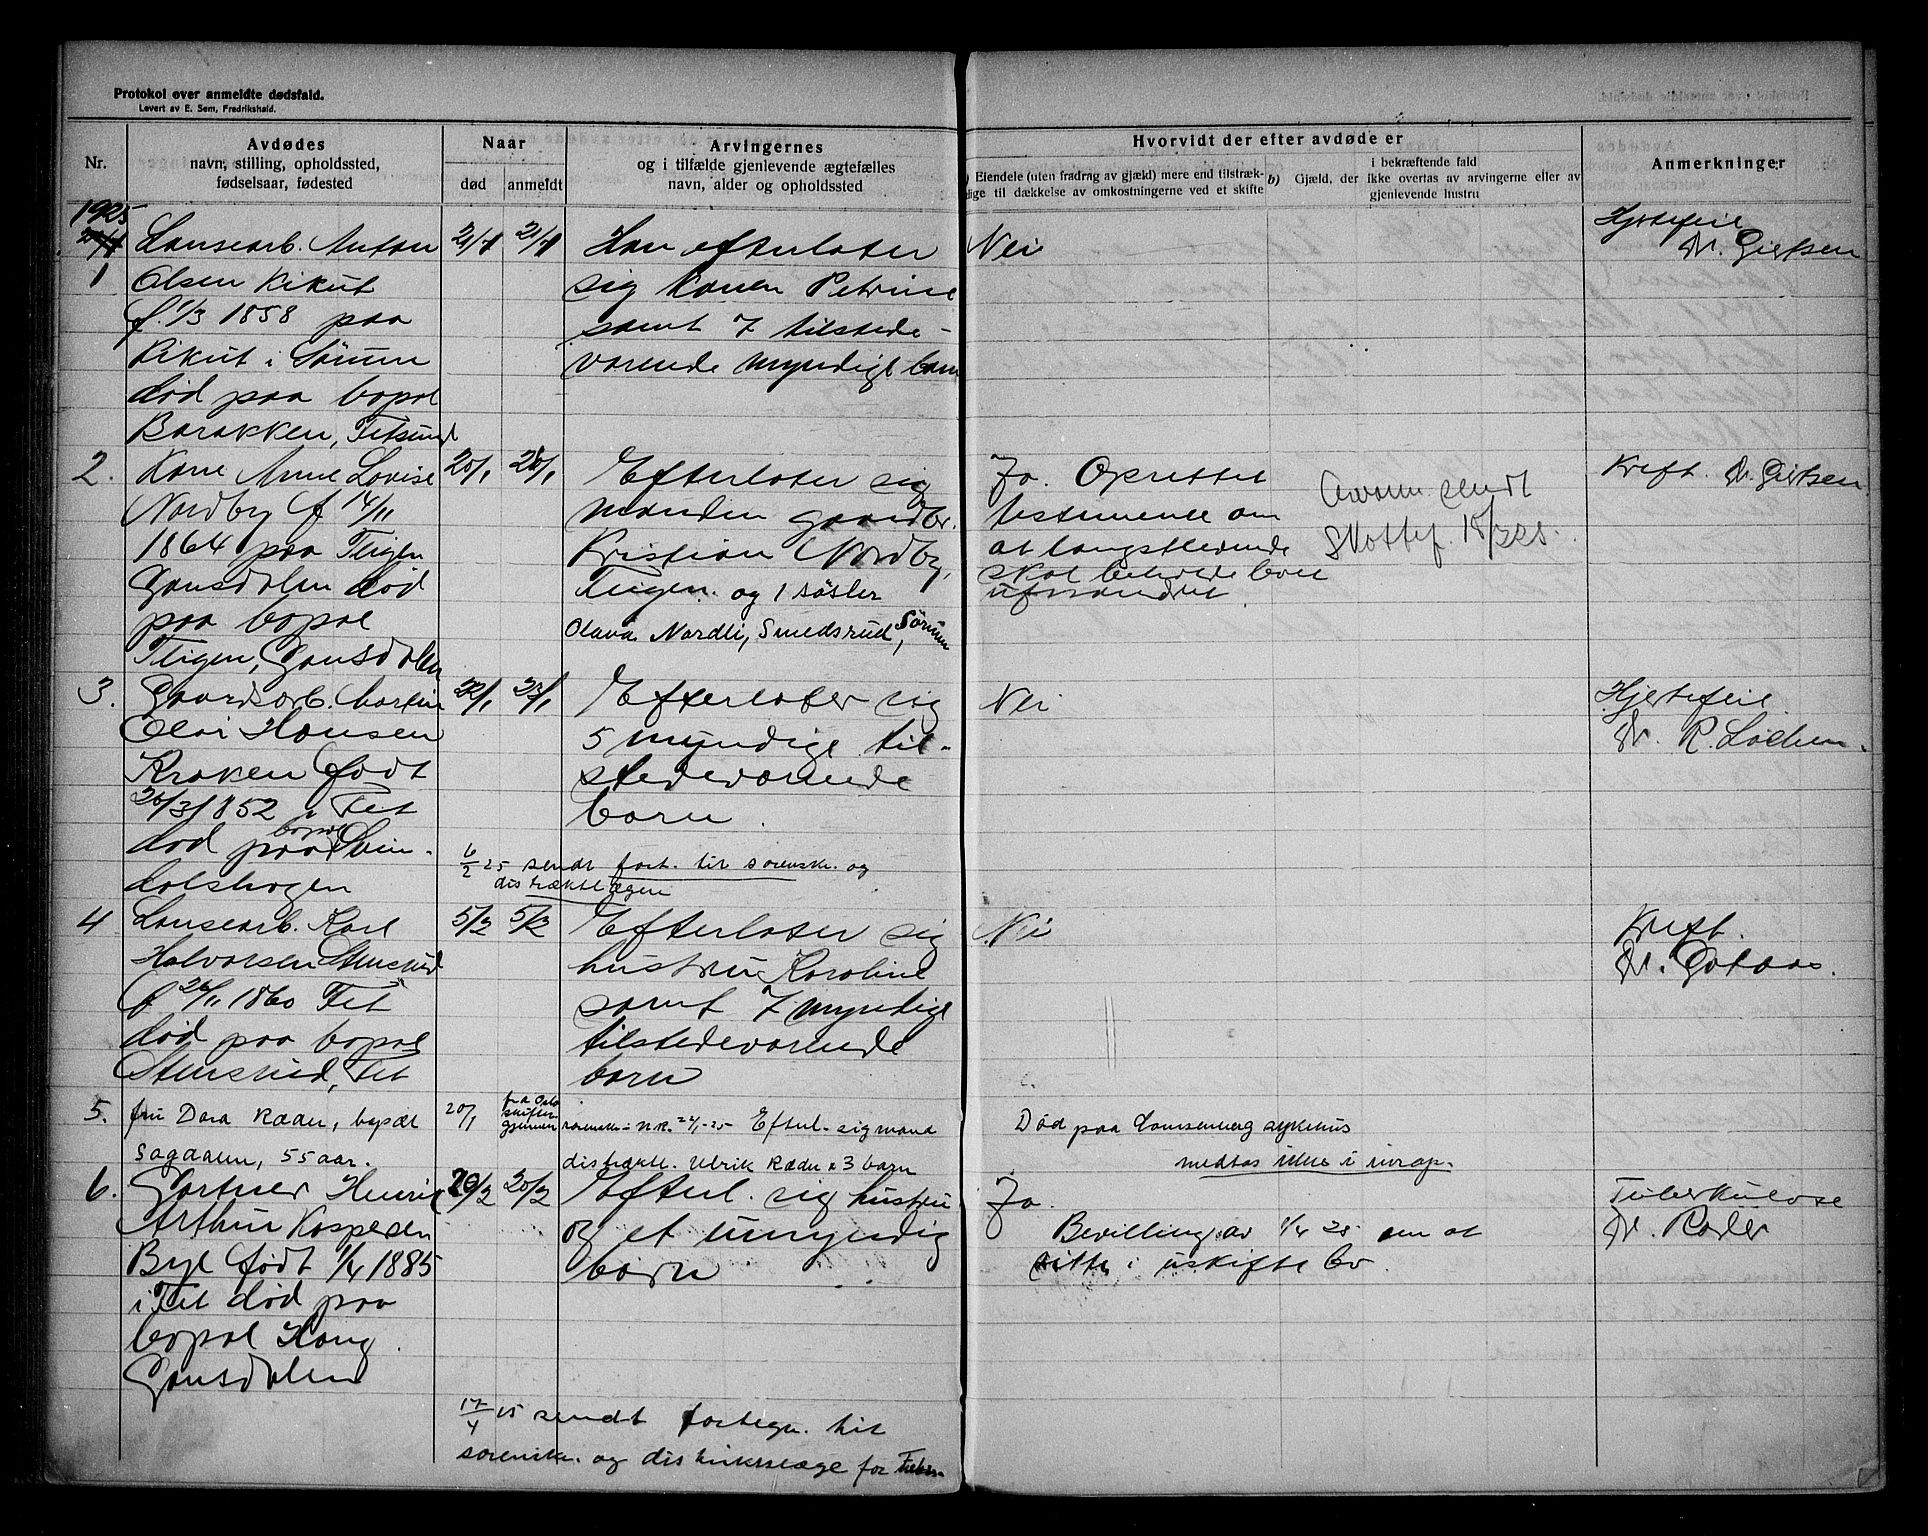 Protokol over anmeldte dødsfald.
Levert av E. Sem, Fredrikshald.
Nr.
Avdødes
navn, stilling, opholdssted,
fødselsaar, fødested
Naar
død
anmeldt
Arvingernes
og i tilfælde gjenlevende ægtefælles
navn, alder og opholdssted
Hvorvidt der efter avdøde er
Eiendele (uten fradrag av gjæld) mere end tilstræk-
lige til dækkelse av omkostningerne ved et skifte
b) Gjæld, der
i bekræftende fald
ikke overtas av arvingerne eller av
gjenlevende hustru
Anmerkninger
1925
1
Lænsearb. Anton
Olsen Kikut
f. 1/3 1858 paa
Kikut i Sørum
død paa bopæl
Barakken, Fetsund
21/1
21/1
Han efterlater
sig konen Petrine
samt 7 tilstede-
værende myndige barn
Nei
Hjertefeil
Dr. Giertsen
2.
Kone Anne Lovise
Nordby f 14/11
1864 paa Teigen
Gansdalen død
paa bopæl
Teigen, Gansdalen
20/1
Efterlater sig
manden gaardbr.
Kristian Nordby,
Teigen. og 1 søster
Olava Nordli, Smedsrud, Sørum
Ja. Oprettet
testamente om
at længstlevende
skal beholde boet
uforandret
sendt
Kreft. Dr. Giertsen
3.
Gaardsarb. Martin
Hansen
Kraken født
26/3 1852 i Fet
død paa bopæl Svin-
dalshagen
22/1
23/1
Efterlater sig
5 myndige til-
stedeværende
barn.
Nei
Hjertefeil.
Dr. R. Lochen.
6/2 25 sendt fort. til sorenskr. og
distriktslægen
4
Lænsearb. Karl
Halvorsen Stensrud
f 26/11 1860 Fet
død paa bopæl
Stensrud, Fet
5/2
5/2
Efterlater sig
hustru Karoline
samt 7 myndige
tilstedeværende
barn
Nei
Kreft.
Dr. Gotaas.
5.
fru Dora Ræder, bopæl
Sagdalen, 55 aar.
20/1
fra Oslo
skifter
gjennem
sorenskr. - N.R. 24/1-25 Efterl. sig mand
distriktl. Ulrik Ræder & 3 barn
Død paa Lovisenberg sykehus
medtas ikke i innrap.
6.
Gartner Henrik
Arthur Kaspersen
Bye født 1/4 1885
i Fet død paa
bopæl Haug
Gansdalen
20/2
20/2
Efterl. sig hustru
og et umyndig
barn
Ja.
Bevilling av 1/4 25 om at
sitte i uskifte bo.
Tuberkulose
Dr. Ræder
17/4 25 sendt fortegn. til
sorenskr. og distriktslæge for Feber.